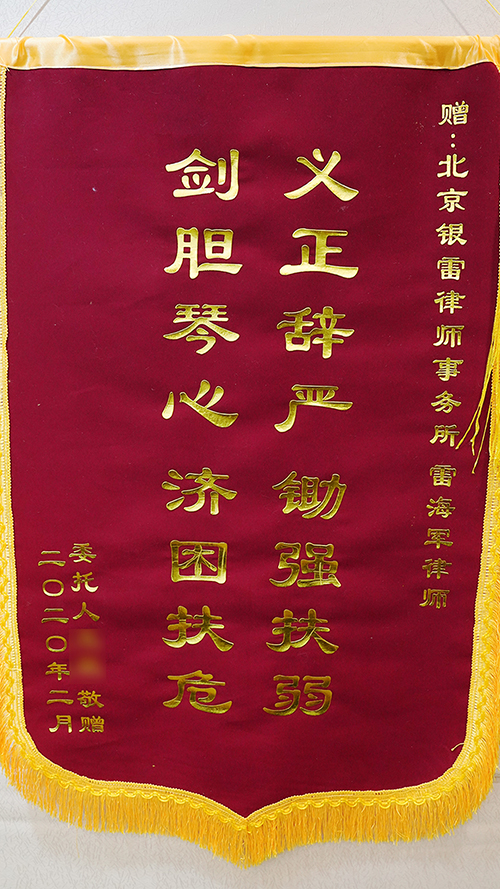 赠：北京银雷律师事务所 雷海军律师
义正辞严 锄强扶弱
剑胆琴心 济困扶危
委托人 敬赠
二〇二〇年二月